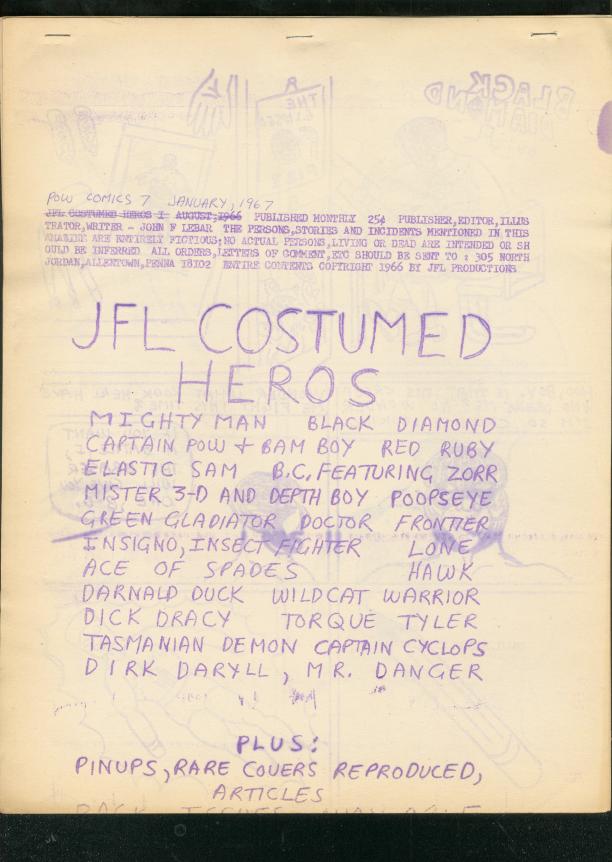 POW COMICS 7 JANUARY, 1967
JFL COSTUMED HEROS I AUGUST, 1966 PUBLISHED MONTHLY 25¢ PUBLISHER,EDITOR,ILLUS
TRATOR,WRITER - JOHN F LEBAR THE PERSONS,STORIES AND INCIDENTS MENTIONED IN THIS
ARE ENTIRELY FICTIOUS;NO ACTUAL PERSONS,LIVING OR DEAD ARE INTENDED OR SH
OULD BE INFERRED ALL ORDERS,LETTERS OF COMMENT,ETC SHOULD BE SENT TO : 305 NORTH
JORDAN,ALLENTOWN,PENNA 18102 ENTIRE CONTENTS COPYRIGHT 1966 BY JFL PRODUCTIONS
JFL COSTUMED
HEROS
MIGHTY MAN BLACK DIAMOND
CAPTAIN POW & BAM BOY RED RUBY
ELASTIC SAM B.C, FEATURING ZORR
MISTER 3-D AND DEPTH BOY POOPSEYE
GREEN GLADIATOR DOCTOR FRONTIER
INSIGNO, INSECT FIGHTER LONE
ACE OF SPADES HAWK
DARNALD DUCK WILDCAT WARRIOR
DICK DRACY TORQUE TYLER
TASMANIAN DEMON CAPTAIN CYCLOPS
DIRK DARYLL, MR. DANGER
PLUS:
PINUPS, RARE COVERS REPRODUCED,
ARTICLES
BACK ISSUES